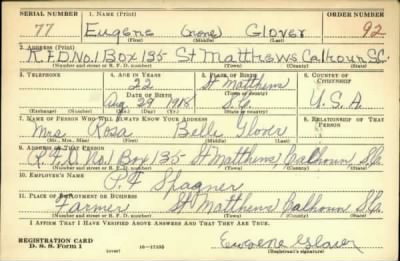 SERIAL NUMBER 1. NAME (Print) ORDER NUMBER
77 Eugene (none) Glover 92
(First) (Middle) (Last)
2. ADDRESS (Print)
R.F.D. No. 1 Box 135 St Matthews Calhoun S.C.
(Number and street or R. F. D. number) (Town) (County) (State)
3. TELEPHONE 4. AGE IN YEARS 5. PLACE OF BIRTH 6. COUNTRY OF CITIZENSHIP
22 St Matthews
DATE OF BIRTH (Town or county)
Aug 29 1918 S.C. U.S.A
(Exchange) (Number) (Mo.) (Day) (Yr.) (State or country)
7. NAME OF PERSON WHO WILL ALWAYS KNOW YOUR ADDRESS 8. RELATIONSHIP OF THAT PERSON
Mrs. Rosa Belle Glover
(Mr., Mrs., Miss) (First) (Middle) (Last)
9. ADDRESS OF THAT PERSON
R.F.D. No. 1 Box 135 St Matthews, Calhoun, S.C.
(Number and street or R. F. D. number) (Town) (County) (State)
10. EMPLOYER'S NAME
Spagner
11. PLACE OF EMPLOYMENT OR BUSINESS
Farmer St Matthews Calhoun S.C.
(Number and street or R. F. D. number) (Town) (County) (State)
I AFFIRM THAT I HAVE VERIFIED ABOVE ANSWERS AND THAT THEY ARE TRUE.
REGISTRATION CARD
D. S. S. Form 1 (over) 16—17105 Eugene Glover
(Registrant's signature)